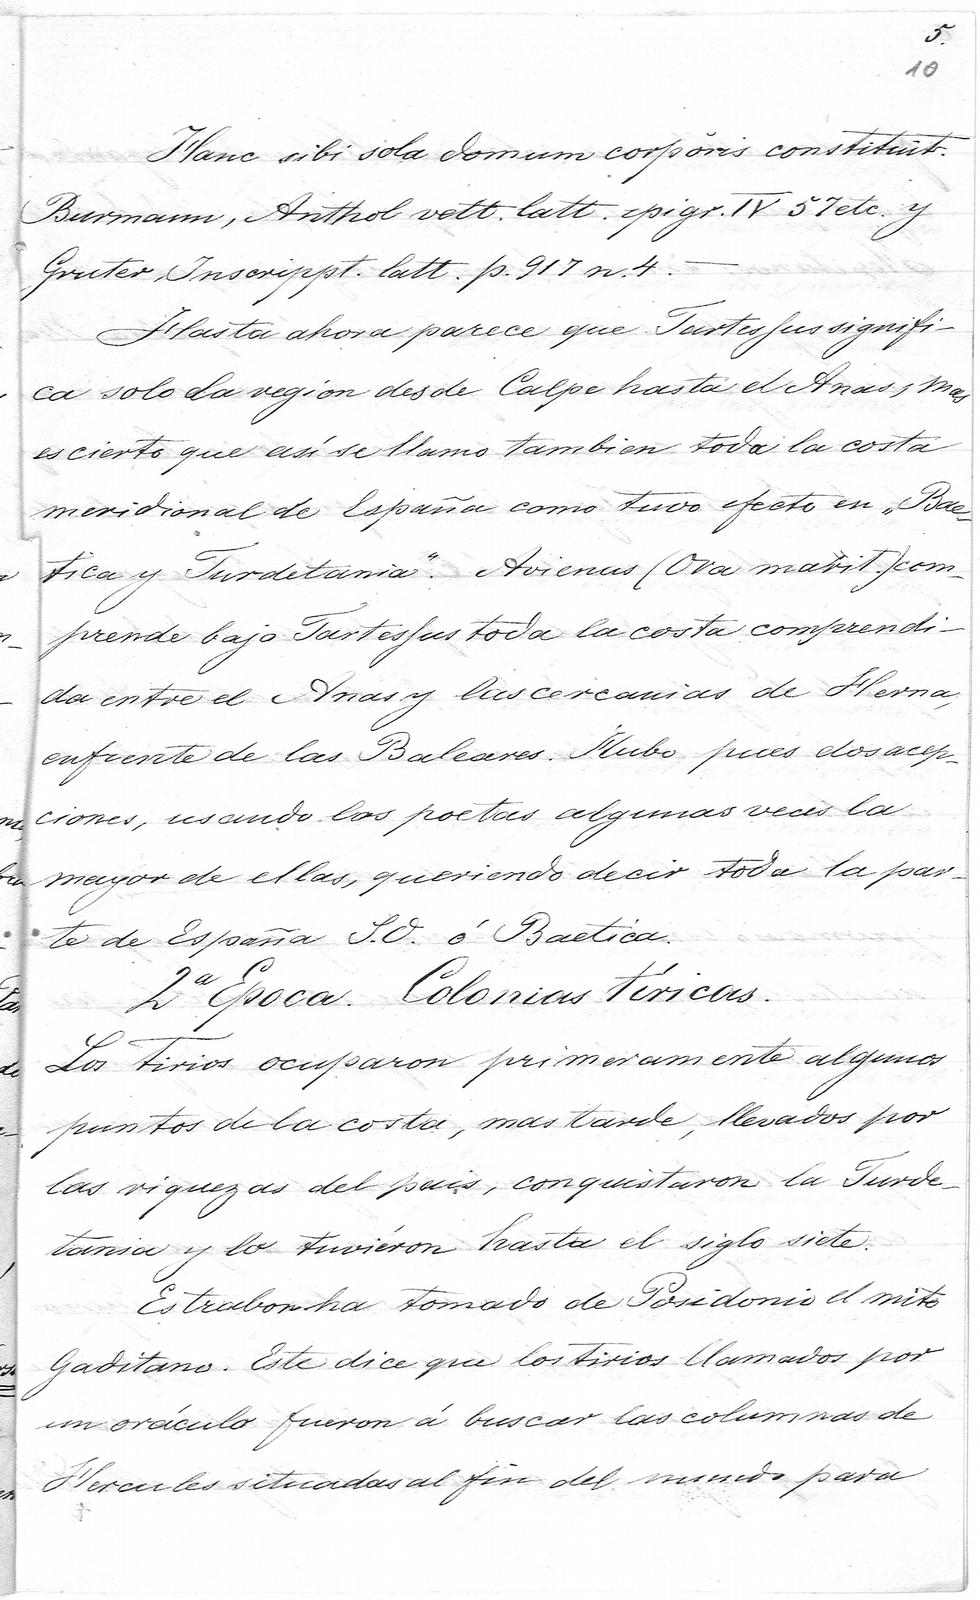 5.
10
Hanc sibi sola domum corpŏris constituit.
Burmann, Anthol vett. latt. epigr. IV 57 etc. y
Gruter, Inscrippt. latt. p. 917 n. 4. —
Hasta ahora parece que Tartessus signifi-
ca solo la region desde Calpe hasta el Anas, mas
es cierto que así se llamo tambien toda la costa
meridional de España como tuvo efecto en „Bae-
tica y Turdetania“. Avienus (Ora marit.) com-
prende bajo Tartessus toda la costa comprendi-
da entre el Anas y las cercanias de Herna,
enfrente de las Baleares. Hubo pues dos acep-
ciones, usando los poetas algunas veces la
mayor de ellas, queriendo decir toda la par-
te de España S.O. ó Baetica.
2ª Epoca. Colonias tíricas.
Los Tirios ocuparon primeramente algunos
puntos de la costa, mas tarde, llevados por
las riquezas del pais, conquistaron la Turde-
tania y lo tuviéron hasta el siglo siete.
Estrabon ha tomado de Posidonio el mito
Gaditano. Este dice que los tirios llamados por
un oráculo fueron á buscar las columnas de
Hercules situadas al fin del mundo para